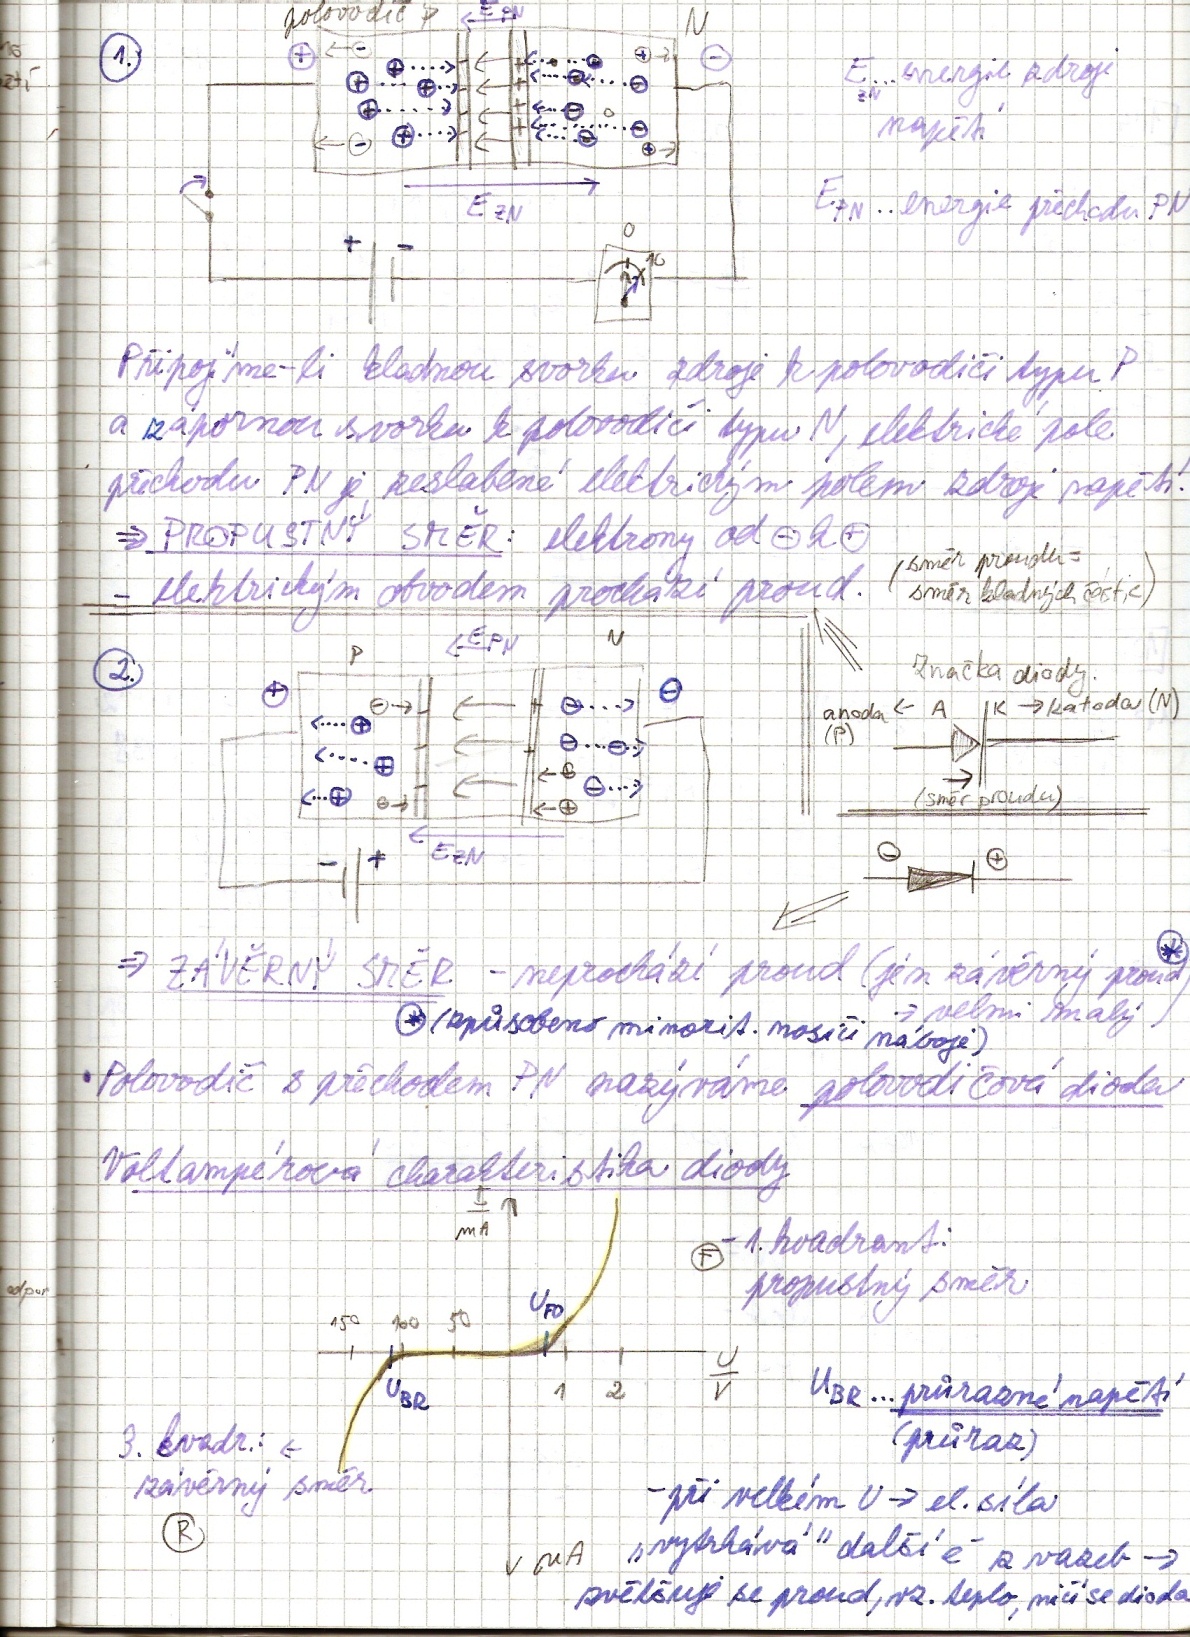 polovodič P
E_PN
N
1.
E_ZN...energie zdroje
napětí
E_PN..energie přechodu PN
E_ZN
+ -
0
10
Připojíme-li kladnou svorku zdroje k polovodiči typu P
a zápornou svorku k polovodiči typu N, elektrické pole
přechodu PN je zeslabené elektrickým polem zdroje napětí.
⇒ PROPUSTNÝ SMĚR: elektrony od ⊖ k ⊕
- elektrickým obvodem prochází proud.
(směr proudu =
směr kladných částic)
2.
P
E_PN
N
E_ZN
- +
Značka diody.
anoda ← A K → katoda (N)
(P)
(směr proudu)
⊖ ⊕
⇒ ZÁVĚRNÝ SMĚR - neprochází proud (jen závěrný proud *
→ velmi malý)
* (způsobeno minorit. nosiči náboje)
• Polovodič s přechodem PN nazýváme polovodičová dioda
Voltampérová charakteristika diody
I
mA
F - 1. kvadrant:
propustný směr
U_FO
150 100 50
U_BR
1 2
U
V
U_BR...průrazné napětí
(průraz)
3. kvadr.: ←
závěrný směr
R
- při velkém U → el. síla
„vytrhává" další e⁻ z vazeb →
V mA
zvětšuje se proud, vz. teplo, ničí se dioda
odpor